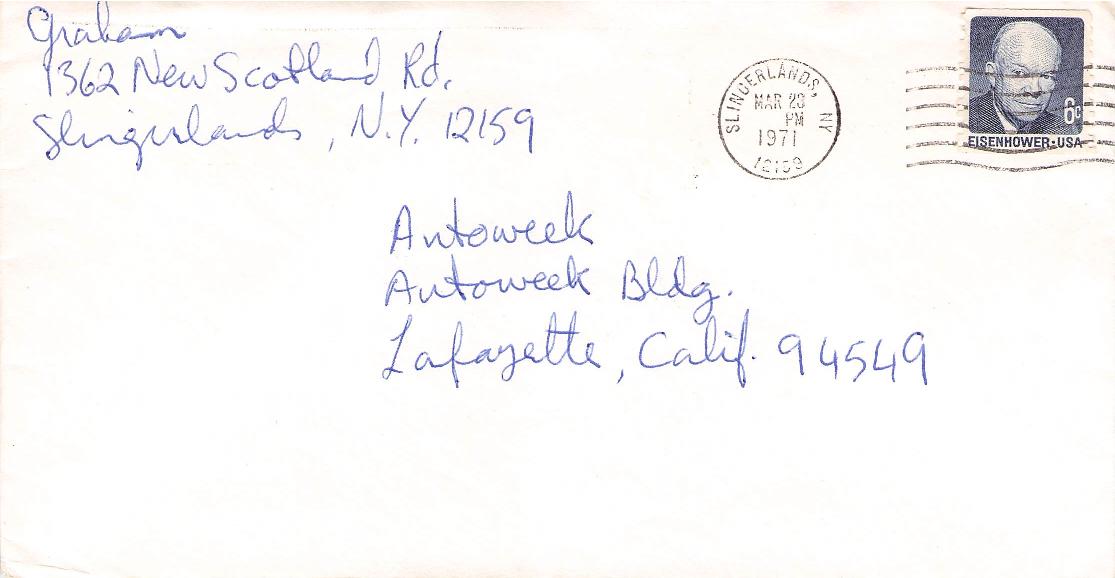 Graham
1362 New Scotland Rd.
Slingerlands, N.Y. 12159
SLINGERLANDS, NY
MAR 23
PM
1971
12159
6c
EISENHOWER·USA
Autoweek
Autoweek Bldg.
Lafayette, Calif. 94549